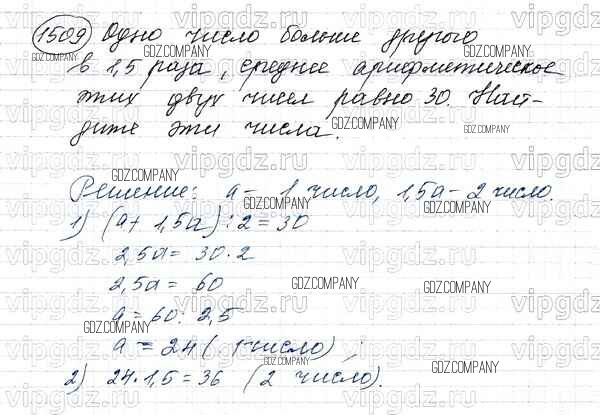 1509 Одно число больше другого
в 1,5 раза, среднее арифметическое
этих двух чисел равно 30. Най-
дите эти числа.
Решение: a - 1 число, 1,5a - 2 число.
1) (a + 1,5a) : 2 = 30
2,5a = 30 · 2
2,5a = 60
a = 60 : 2,5
a = 24 (1 число);
2) 24 · 1,5 = 36 (2 число).
vipgdz.ru
GDZ.COMPANY